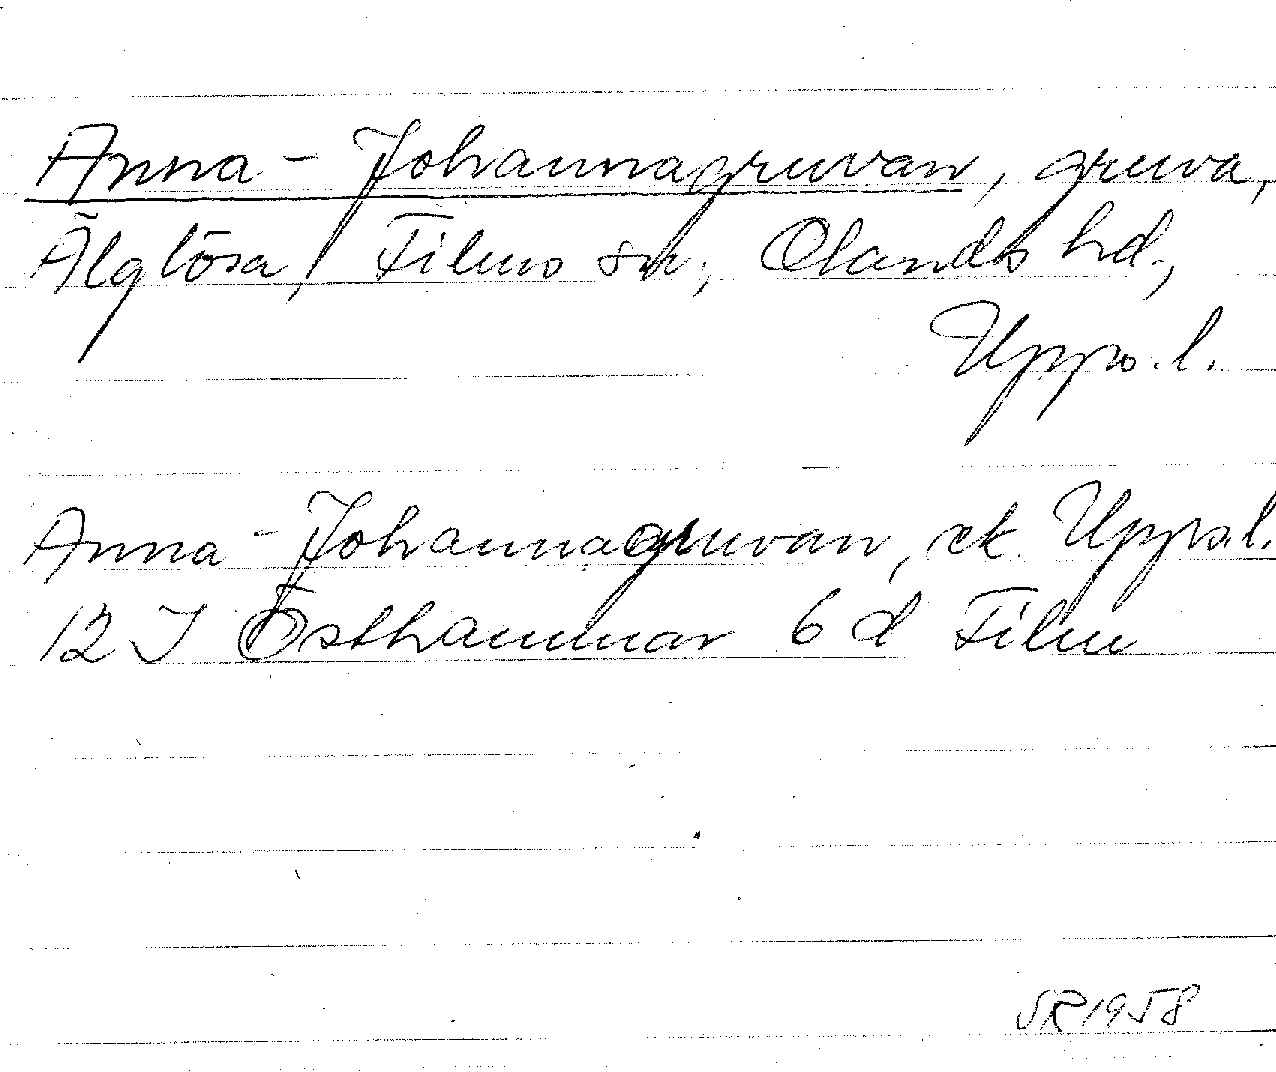 Anna-Johannagruvan, gruva,
Älglösa, Films sn, Olands hd,
Upps. l.
Anna-Johannagruvan, ek. Upps. l.
12 I Östhammar 6 d Film
SR 1958